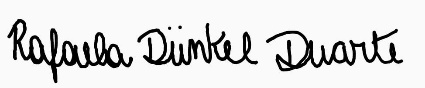 Rafaela Dünkel Duarte